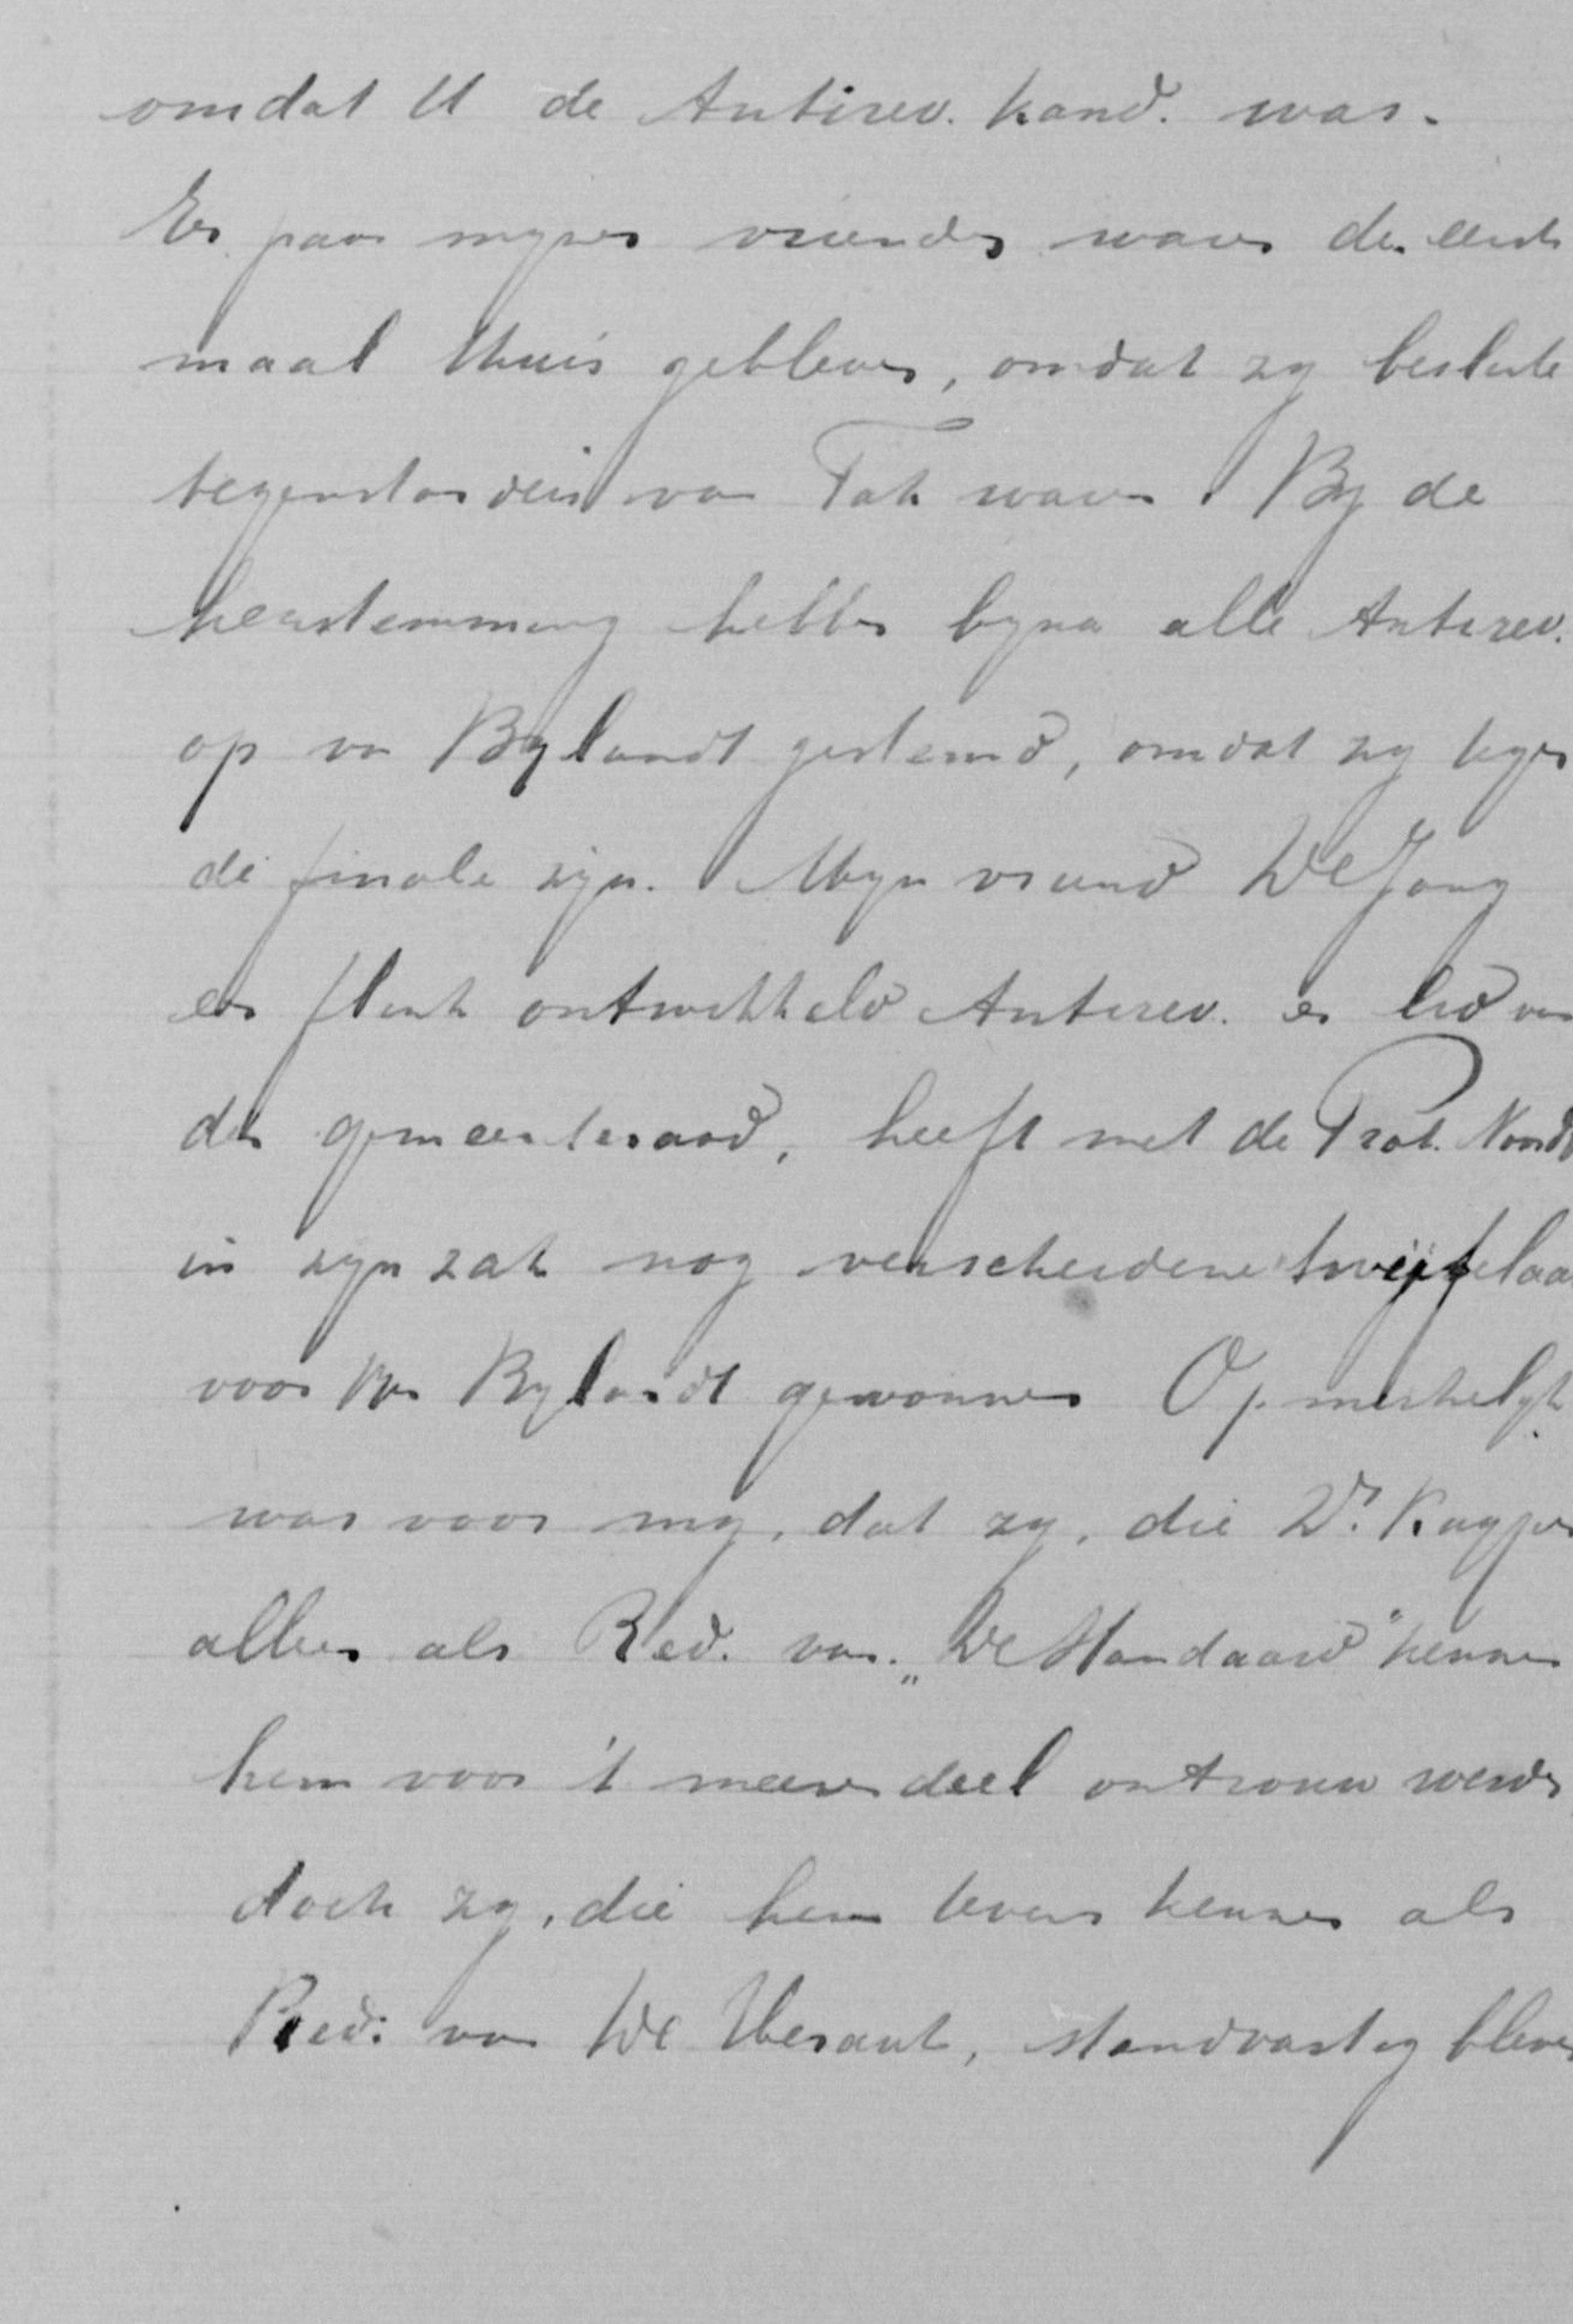 omdat U de Antirev. kand. was.
Een paar mijner vrienden waren de eerste
maal thuis gebleven, omdat zij besliste
tegenstanders van Tak waren. Bij de
herstemming hebben bijna alle Antirev.
op van Bylandt gestemd, omdat zij tegen
de finale zijn. Mijn vriend De Jong
een flink ontwikkeld Antirev. en lid van
den gemeenteraad, heeft met de Prot. Noordb
in zijn zak nog verscheidene twijfelaa
voor Van Bylandt gewonnen Opmerkelijk
was voor mij, dat zij, die Dr. Kuyper
alleen als Red. van „De Standaard" kennen
hem voor 't meerendeel ontrouw werden,
doch zij, die hem tevens kennen als
Red. van De Heraut, standvastig bleven